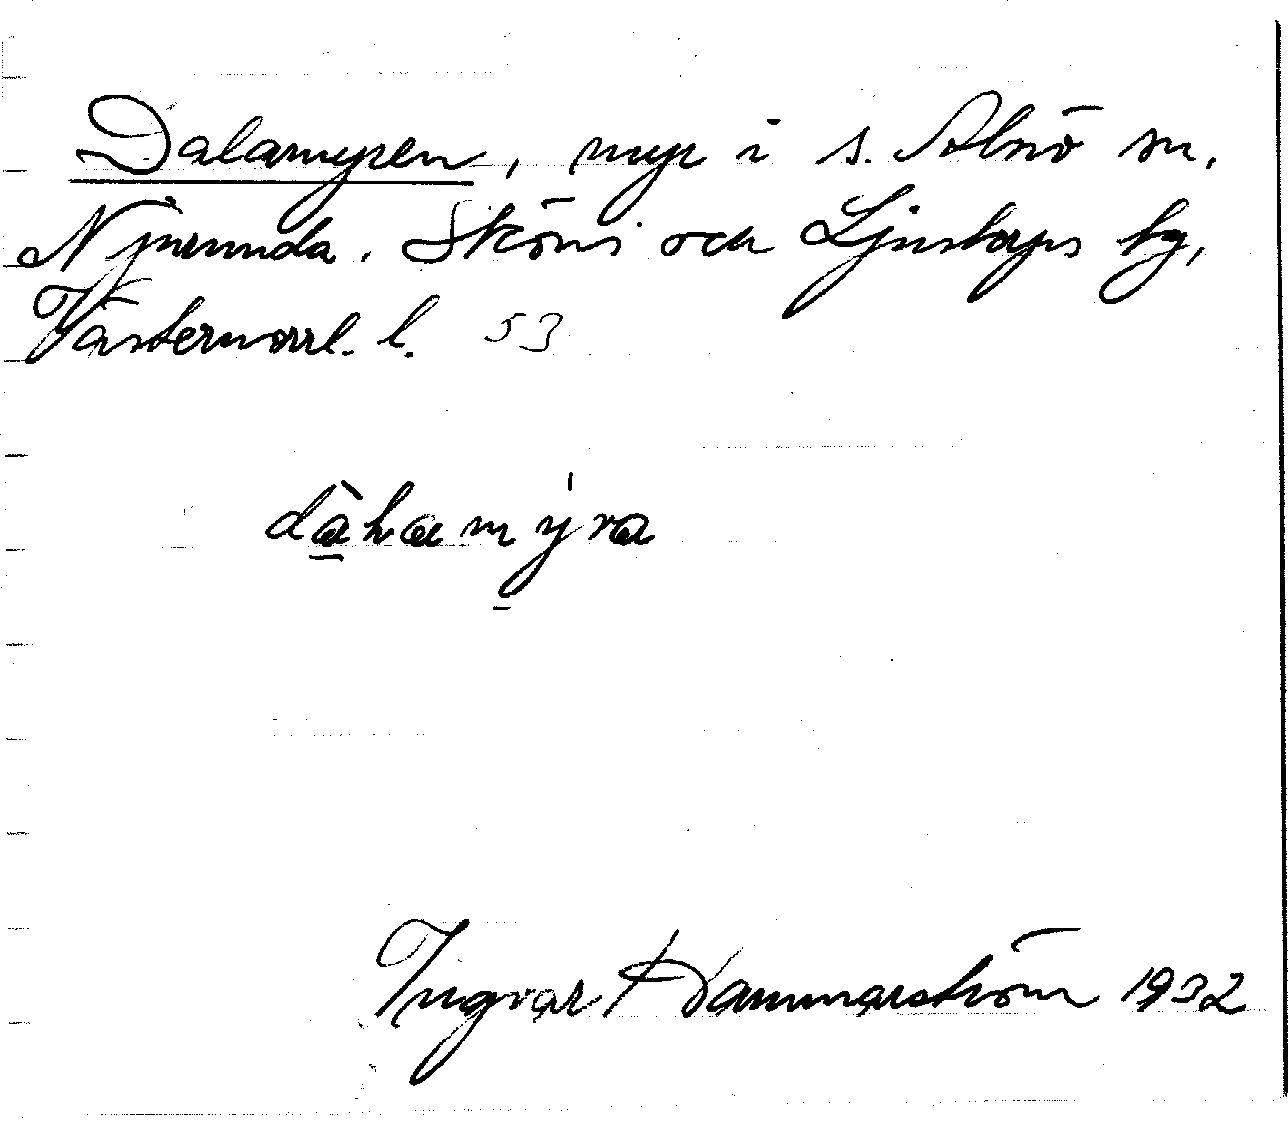 Dalamyren, myr i s. Alnö sn,
Njurunda, Sköns och Ljustorps tg,
Västernorrl. l. 53
dàhamýra
Ingvar Hammarström 1932